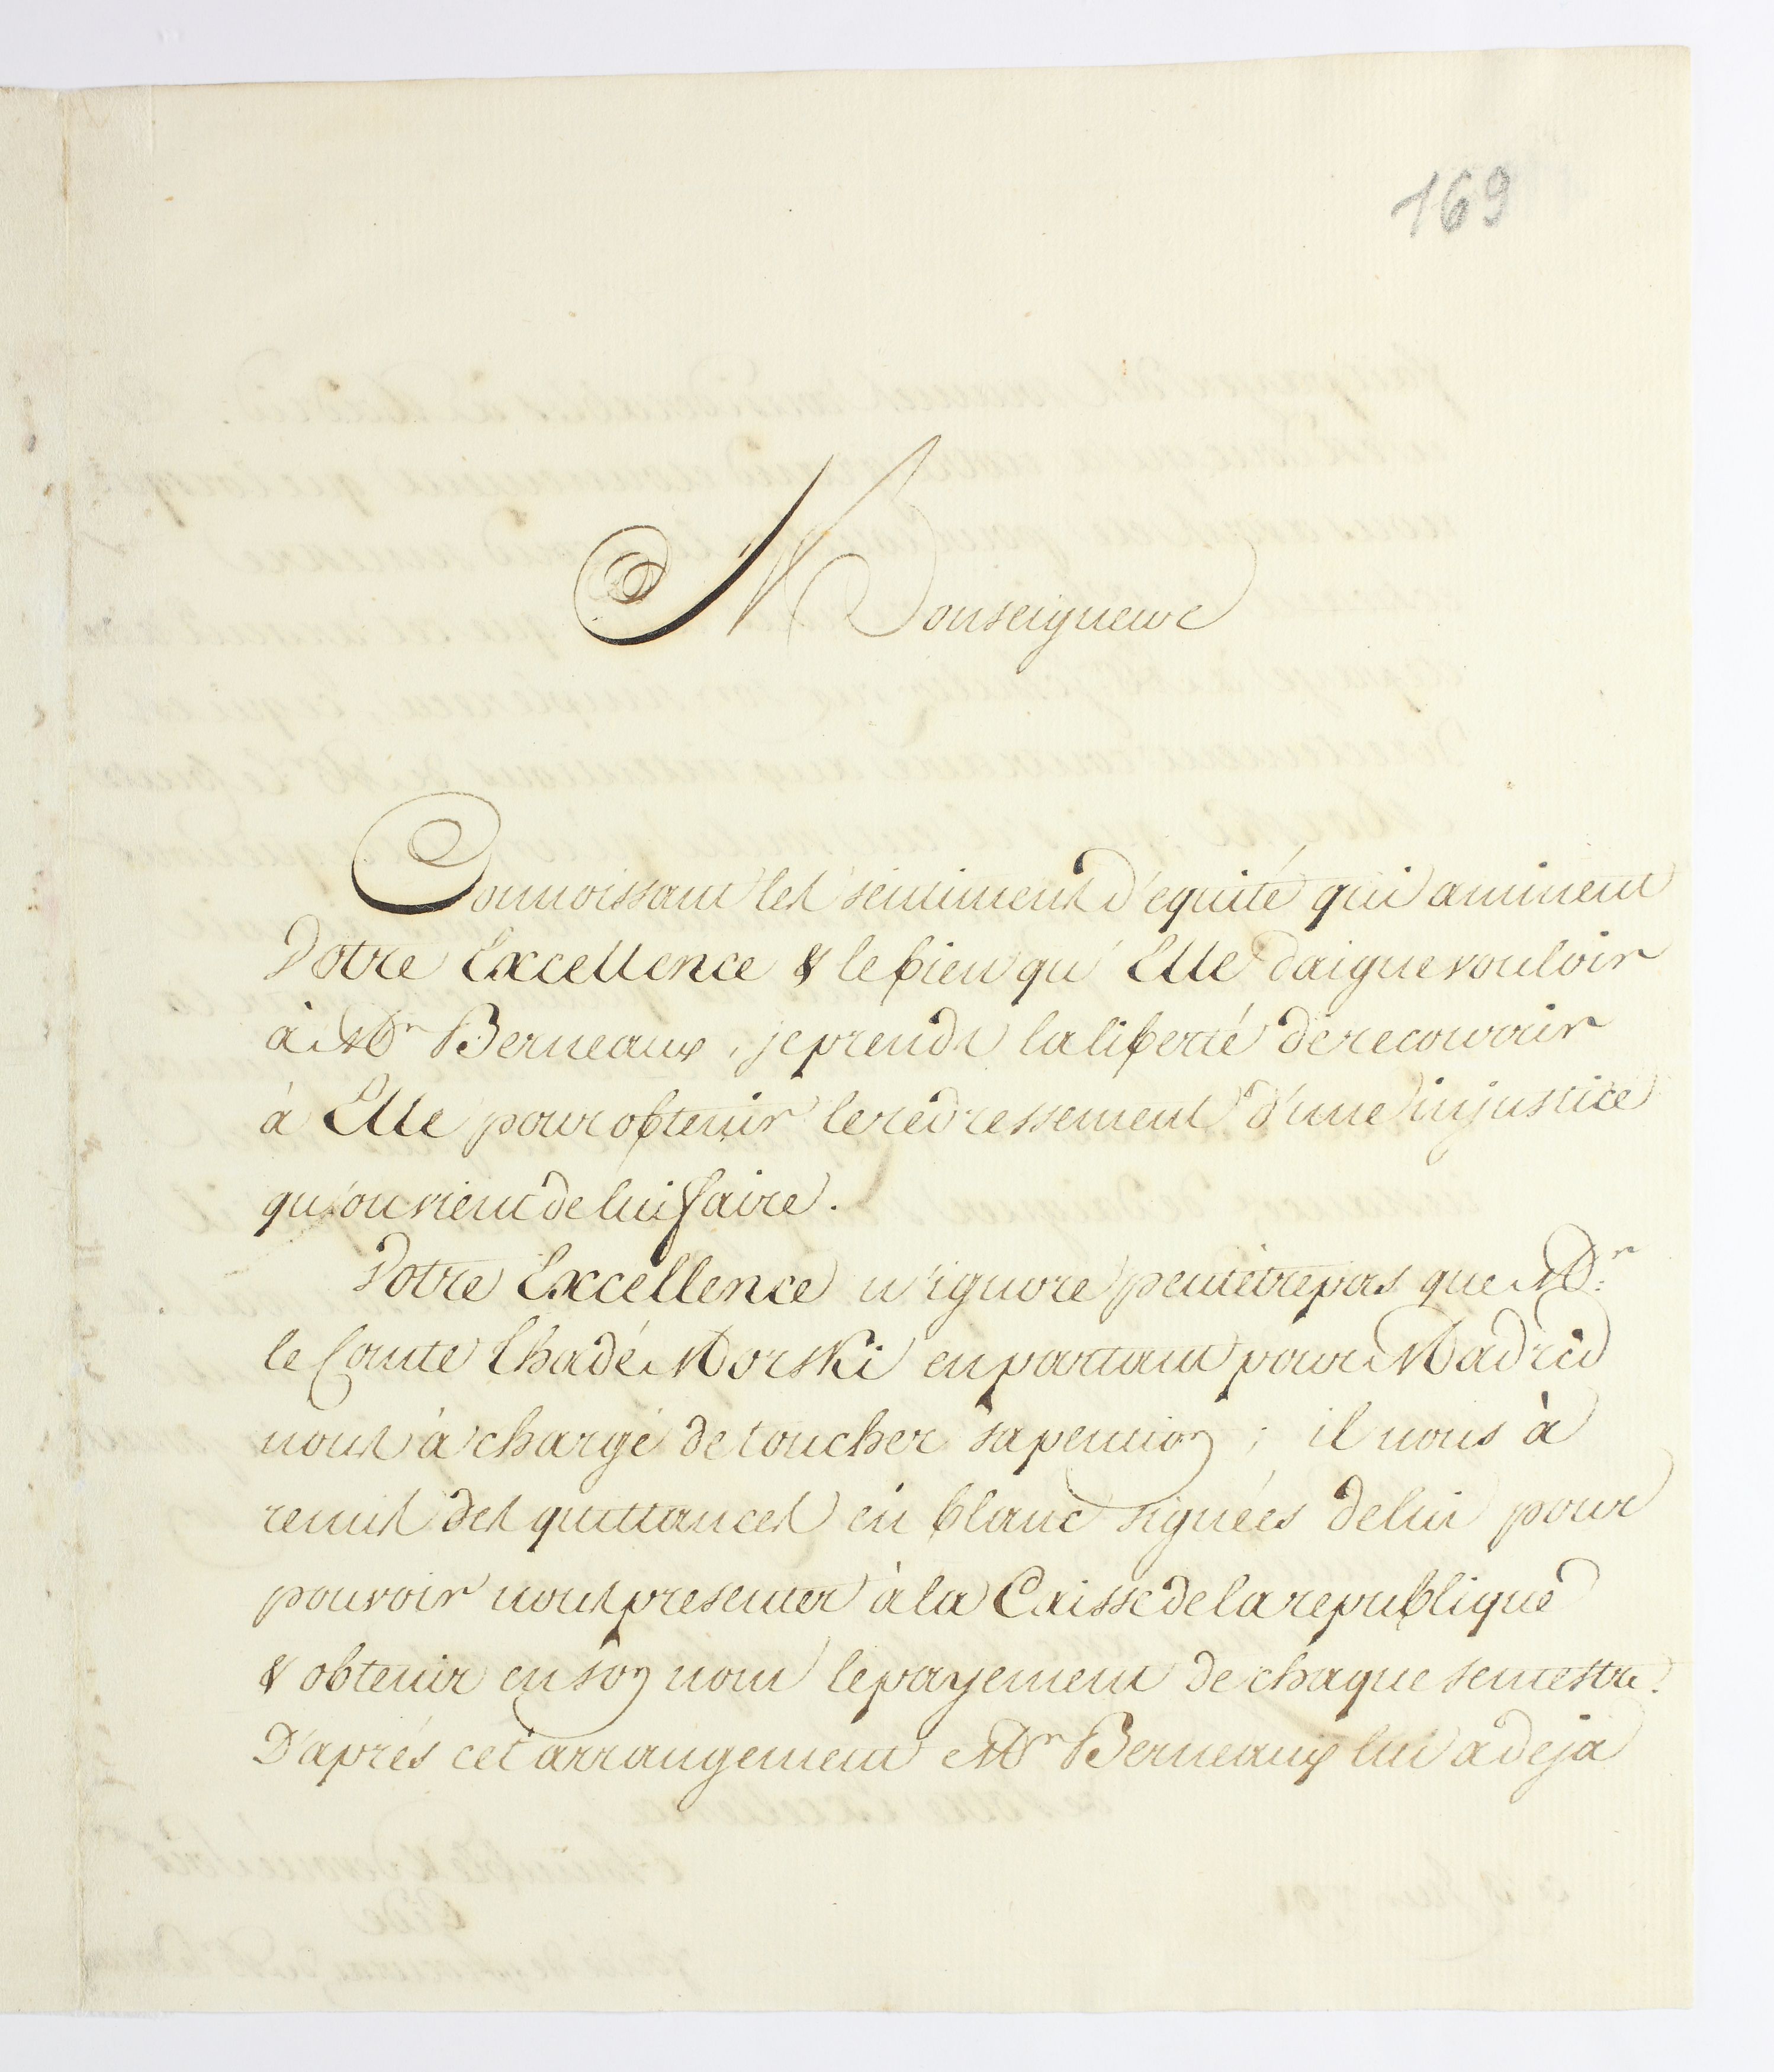 169
Monseigneur
Connoissant les sentiments d'equité qui animent
Votre Excellence & le bien qu'Elle daigne vouloir
à Mr Berneaux, je prends la liberté de recourir
à Elle pour obtenir le redressement d'une injustice
qu'on vient de lui faire.
Votre Excellence n'ignore peutetre pas que Mr.
le Comte Thadé Morski en partant pour Madrid
nous à chargé de toucher sa pension ; il nous à
remis des quittances en blanc signées de lui pour
pouvoir nous presenter à la Caisse de la republique
& obtenir en son nom le payement de chaque semestre.
D'aprés cet arrangement Mr Berneaux lui a deja